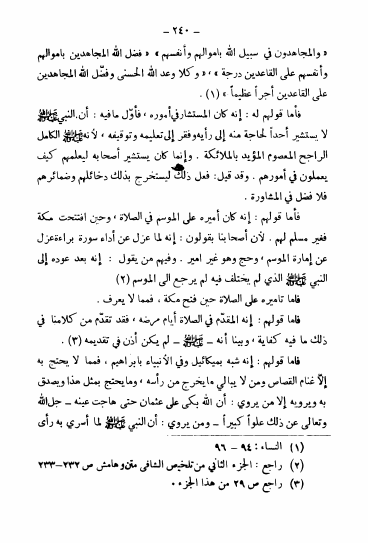 - ٢٤٠ -
« والمجاهدون في سبيل الله باموالهم وأنفسهم » « فضل الله المجاهدين باموالهم
وأنفسهم على القاعدين درجة » ، « وكلا وعد الله الحسنى وفضّل الله المجاهدين
على القاعدين أجراً عظيماً » (١) .
فأما قولهم له : إنه كان المستشار في أموره ، فأوّل مافيه : أن النبي ﷺ
لا يستشير أحداً لحاجة منه إلى رأيه وفقر إلى تعليمه وتوقيفه ، لأنه ﷺ الكامل
الراجح المعصوم المؤيد بالملائكة . وإنما كان يستشير أصحابه ليعلمهم كيف
يعملون في أمورهم . وقد قيل : فعل ذلك ليستخرج بذلك دخائلهم وضمائرهم
فلا فضل في المشاورة .
فأما قولهم : إنه كان أميره على الموسم في الصلاة ، وحين افتتحت مكة
فغير مسلم لهم . لأن أصحابنا يقولون : إنه لما عزل عن أداء سورة براءة عزل
عن إمارة الموسم ، وحج وهو غير امير . وفيهم من يقول : إنه بعد عوده إلى
النبي ﷺ الذي لم يختلف فيه لم يرجع الى الموسم (٢)
فاما تاميره على الصلاة حين فتح مكة ، فمما لا يعرف .
فاما قولهم : إنه المقدّم في الصلاة أيام مرضه ، فقد تقدّم من كلامنا في
ذلك ما فيه كفاية ، وبينا أنه - ﷺ - لم يكن أذن في تقديمه (٣) .
فاما قولهم : إنه شبه بميكائيل وفي الأنبياء بابراهيم ، فمما لا يحتج به
إلّا غنام القصاص ومن لا يبالي ما يخرج من رأسه ، وما يحتج بمثل هذا ويصدق
به ويرويه إلا من يروي : أن الله بكى على عثمان حتى هاجت عينه - جل الله
وتعالى عن ذلك علواً كبيراً - ومن يروي : أن النبي ﷺ لما أسري به رأى
(١) النساء : ٩٤ - ٩٦
(٢) راجع : الجزء الثاني من تلخيص الشافي متن وهامش ص ٢٣٢-٢٣٣
(٣) راجع ص ٢٩ من هذا الجزء .